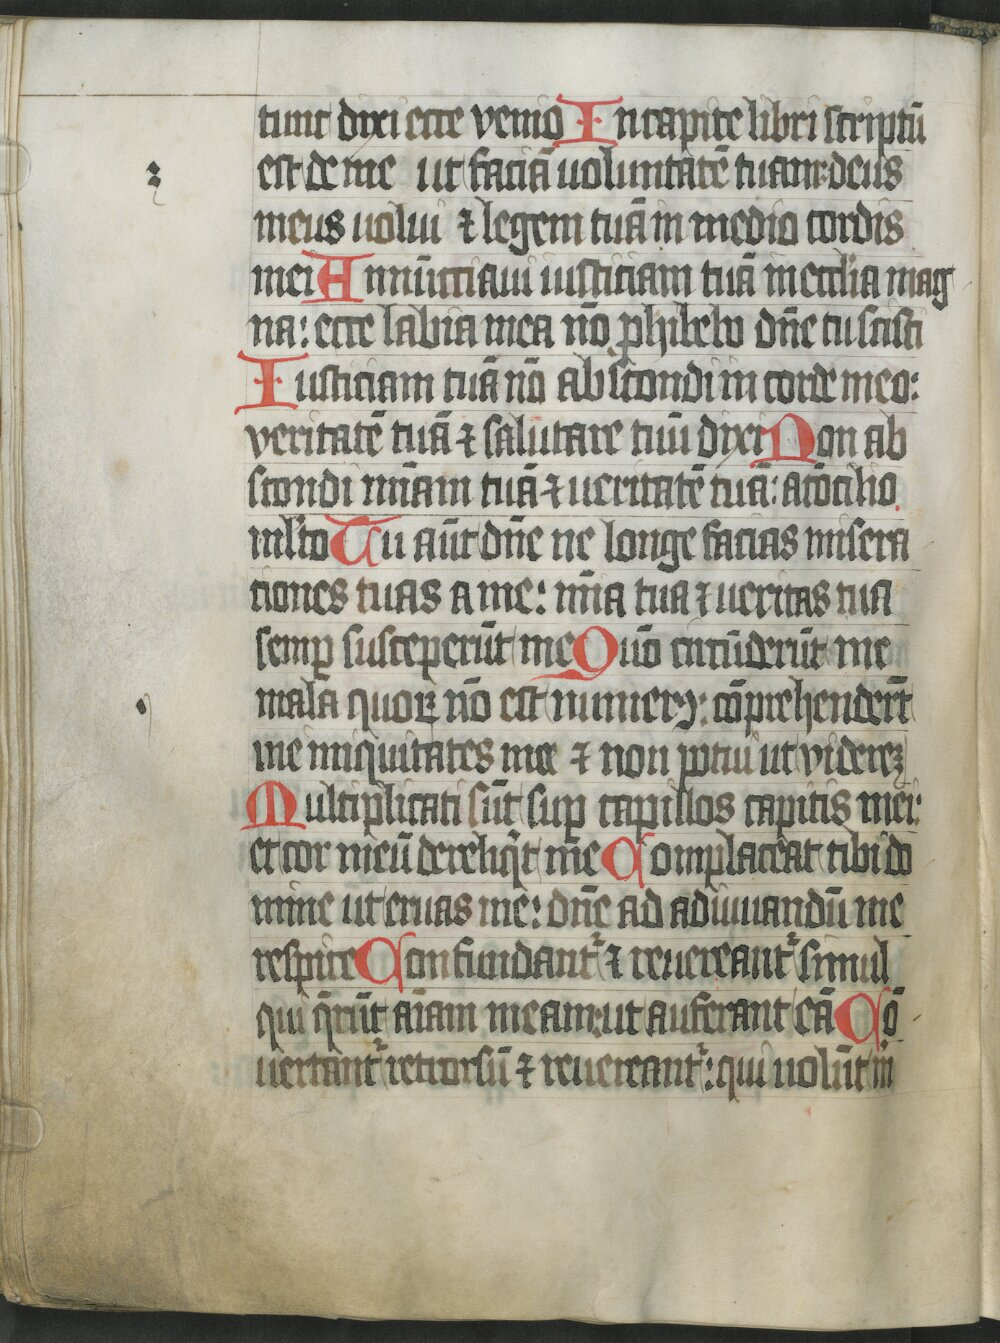 tunc dixi ecce venio In capite libri scriptū
est de me ut faciā uoluntatē tuam: deus
meus uolui ⁊ legem tuā in medio cordis
mei Annūcciaui iusticiam tuā in eccl'ia mag
na: ecce labia mea nō ꝓhibebo dn̄e tu scisti
Iusticiam tuā nō abscondi in corde meo:
veritatē tuā ⁊ salutare tuū dixi Non ab
scondi mīam tuā ⁊ ueritatē tuā: a ɔ̄cilio
ml'to Tu aūt dn̄e ne longe facias misera
tiones tuas a me: mīa tua ⁊ ueritas tua
semꝑ susceperūt me Qūo circūderūt me
mala quoꝝ nō est numerꝰ: cōprehenderūt
me iniquitates mee ⁊ non potui ut viderē
Multiplicati sūt suꝑ capillos capitis mei:
et cor meū dereliq̄t me Complaceat tibi do
mine ut eruas me: dn̄e ad adiuuandū me
respice Confundant᷑ ⁊ reuereant᷑ simul
qui q̄rūt aīam meam: ut auferant eā Cō
uertant᷑ retrorsū ⁊ reuereant᷑: qui uolūt m̄